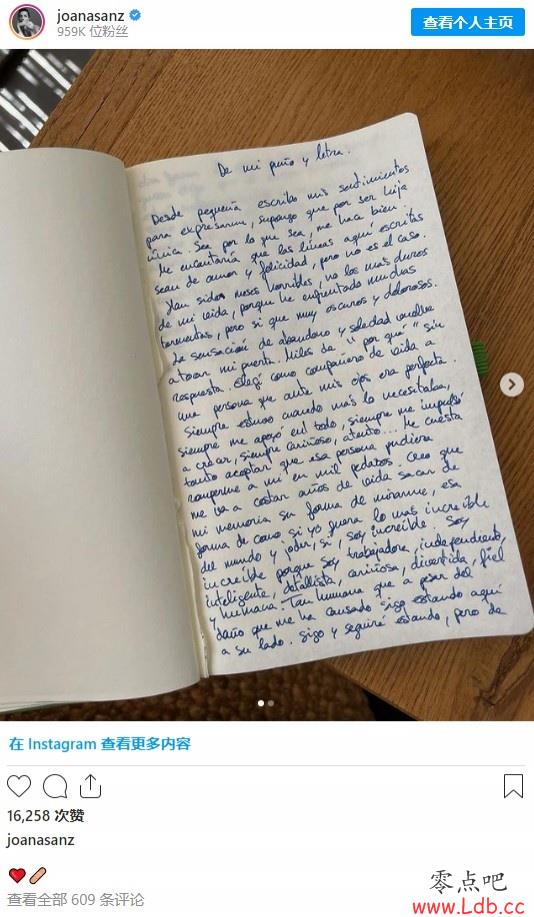 joanasanz
959K 位粉丝
查看个人主页
De mi puño y letra.
Desde pequeña escribo mis sentimientos
para expresarme, supongo que por ser hija
única. Sea por lo que sea, me hace bien.
Me encantaría que las líneas aquí escritas
sean de amor y felicidad, pero no es el caso.
Han sido meses horribles, no los mas duros
de mi vida, porque he enfrentado muchas
tormentas, pero si que muy oscuros y dolorosos.
La sensación de abandono y soledad vuelve
a tocar mi puerta. Miles de "por qué" sin
respuesta. Elegí como compañero de vida a
una persona que ante mis ojos era perfecta.
Siempre estuvo cuando más lo necesitaba,
siempre me apoyó en todo, siempre me impulsó
a crear, siempre cariñoso, atento... Me cuesta
tanto aceptar que esa persona pudiera
romperme a mi en mil pedazos. Creo que
me va a costar años de vida sacar de
mi memoria su forma de mirarme, esa
forma de como si yo fuera lo mas increíble
del mundo y joder, si, soy increíble. Soy
increíble porque soy trabajadora, independiente,
inteligente, detallista, cariñosa, divertida, fiel
y humana. Tan humana que a pesar del
daño que me ha causado sigo estando aquí
a su lado. Sigo y seguiré estando, pero de
在 Instagram 查看更多内容
16,258 次赞
joanasanz
查看全部 609 条评论
零点吧
www.Ldb.cc